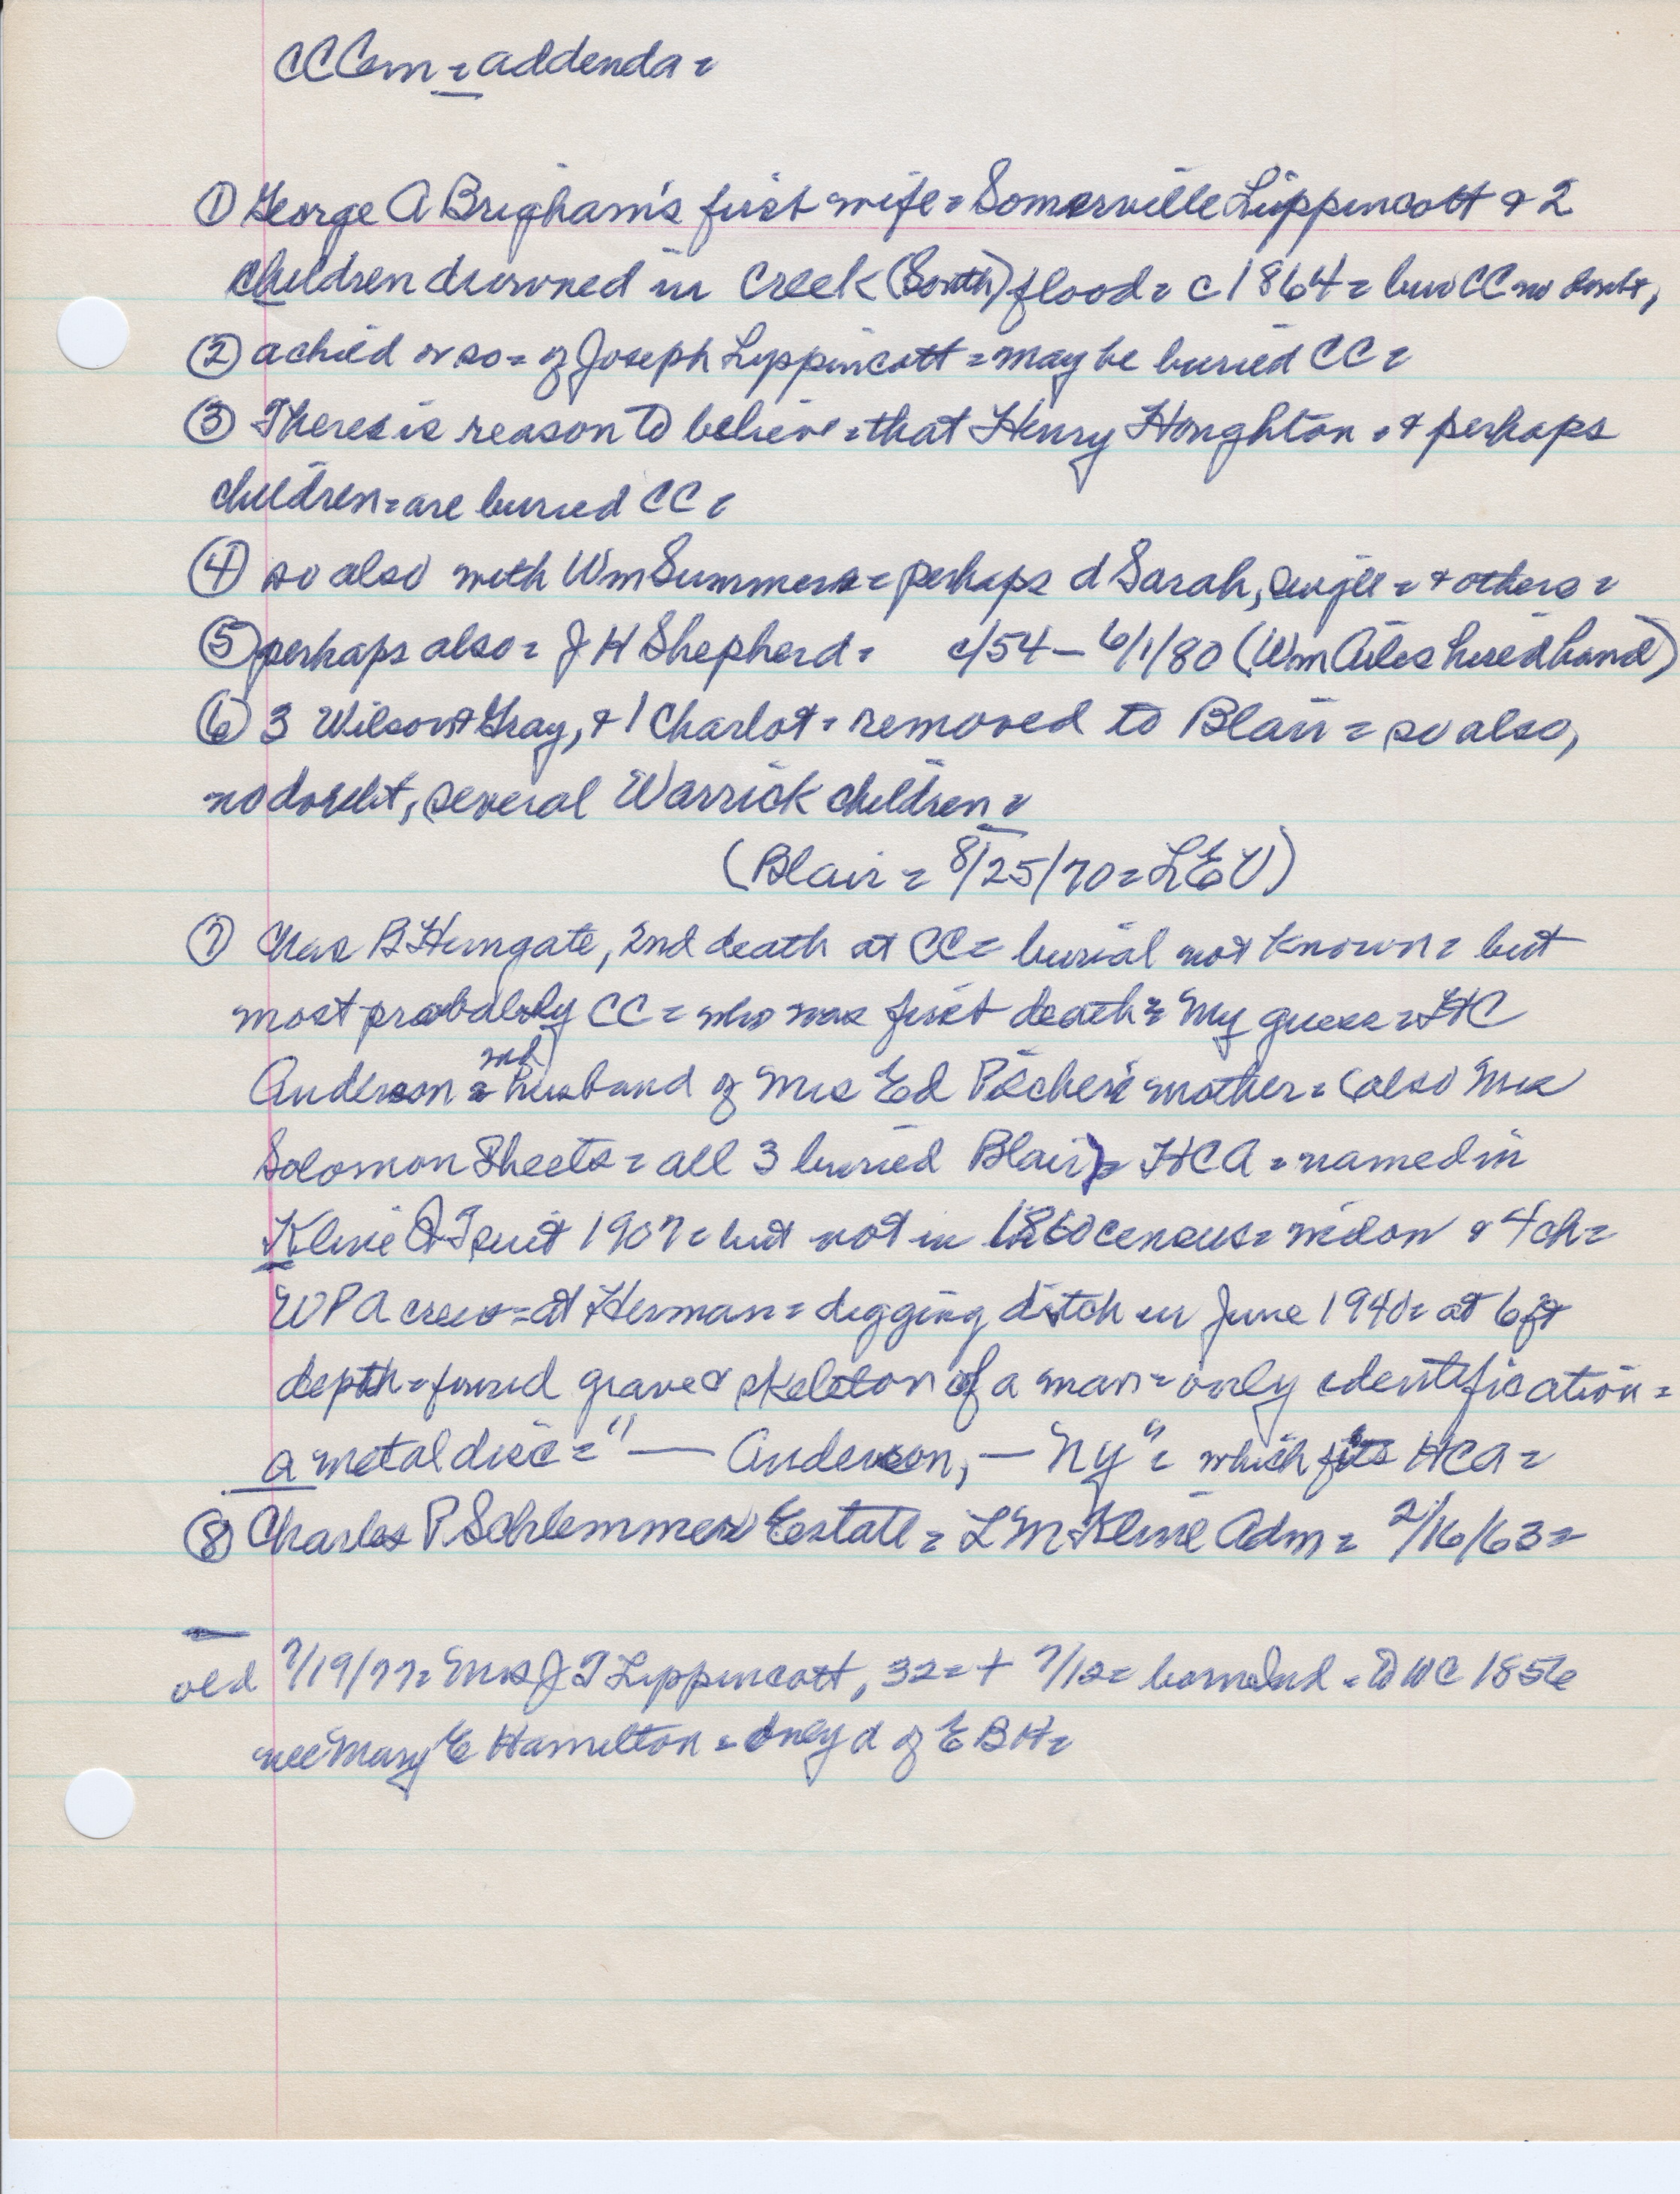 CCCem = addenda =
① George A Brigham's first wife = Somerville Lippincott + 2
children drowned in Creek (South) flood = c 1864 = bur CC no doubt,
② a child or so = of Joseph Lippincott = may be buried CC =
③ There is reason to believe = that Henry Houghton = + perhaps
children = are buried CC =
④ so also with Wm Summers = perhaps d Sarah, single = + others =
⑤ perhaps also = J H Shepherd = c/54 – 6/1/80 (Wm Ailes hired hand)
⑥ 3 Wilson Gray, + 1 Charlot = removed to Blair = so also,
no doubt, several Warrick children =
(Blair = 8/25/70 = LEU)
⑦ Chas B Hungate, 2nd death at CC = burial not known = but
most probably CC = who was first death = My guess = HC
Anderson = 2nd husband of Mrs Ed Pilcher's mother = (also Mrs
Solomon Sheets = all 3 buried Blair) = HCA = named in
Kline QT suit 1907 = but not in 1860 census = widow + 4 ch =
WPA crew = at Herman = digging ditch in June 1940 = at 6 ft
depth = found grave & skeleton of a man = only identification =
a metal disc = "— Anderson, — NY" = which fits HCA =
⑧ Charles P Schlemmer Estate = L M Kline Adm = 2/16/63 =
7/19/77 = Mrs J T Lippincott, 32 = + 7/12 = born Ind = to WC 1856
nee Mary E Hamilton = only d of E B H =